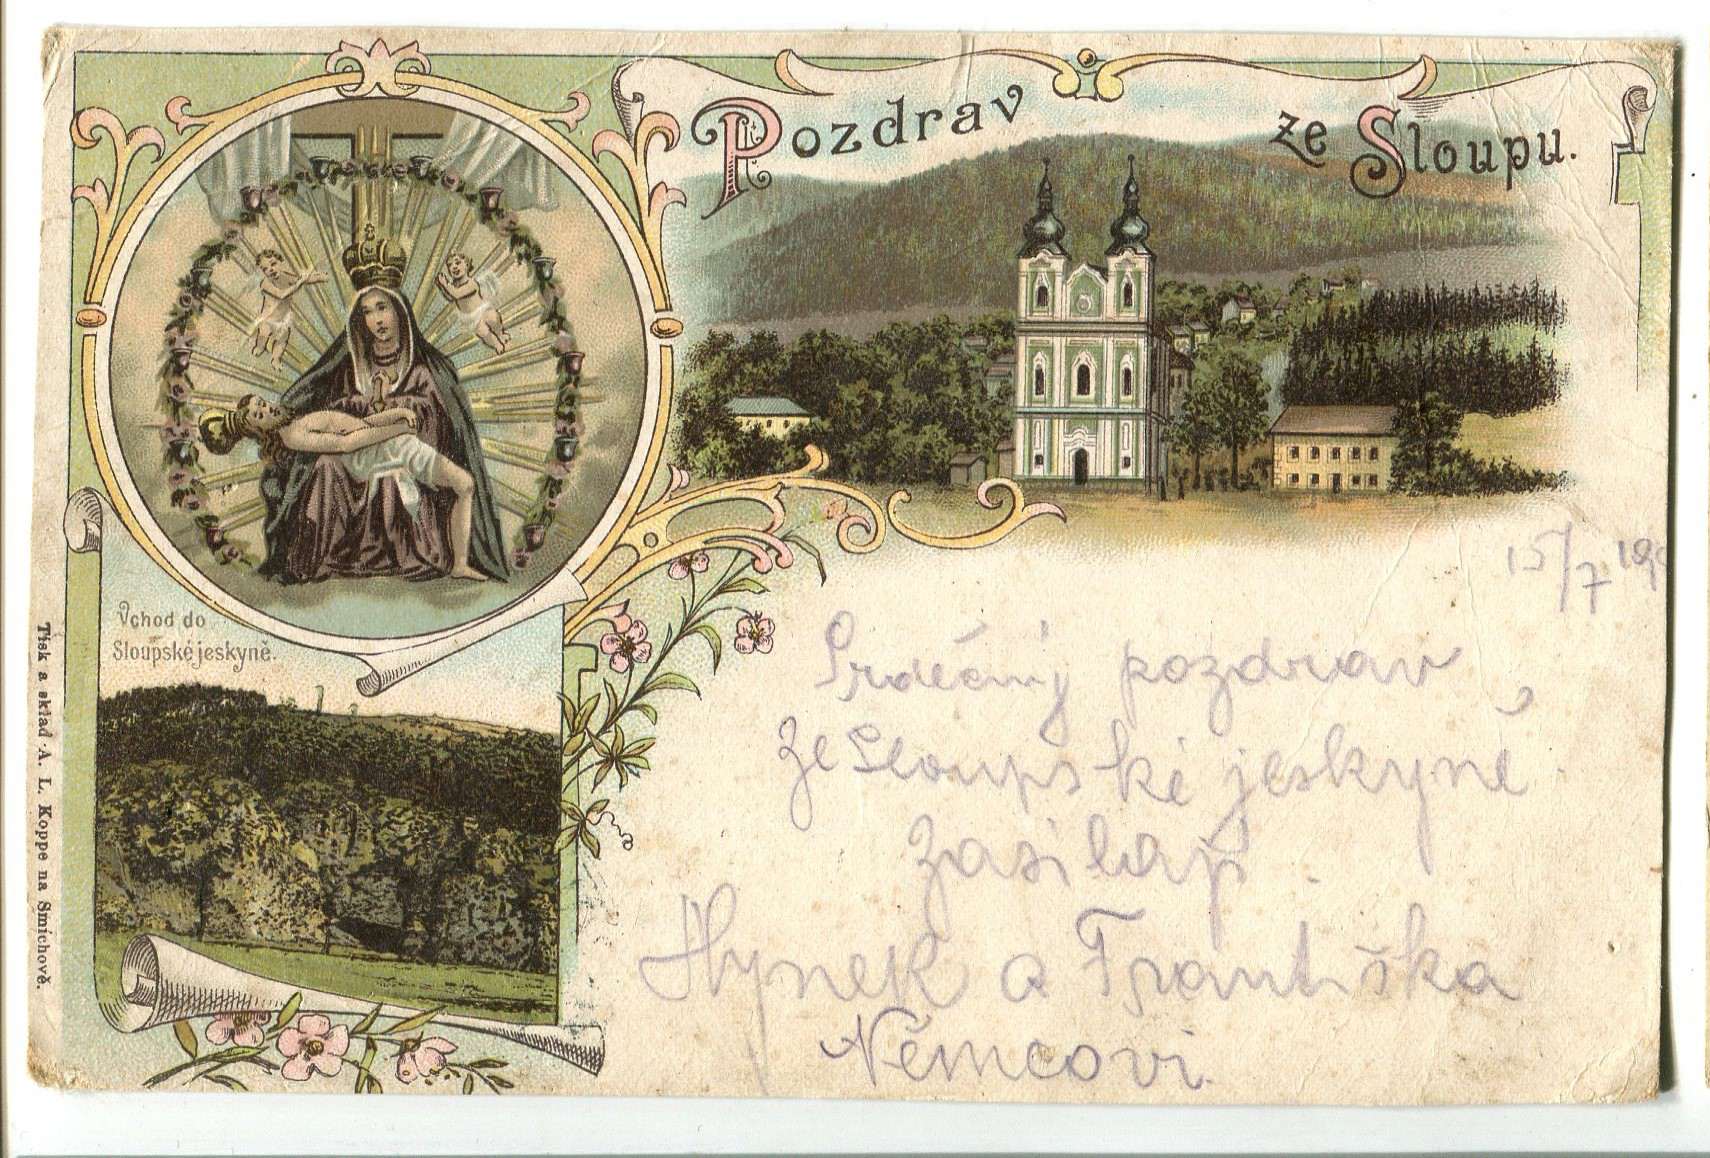 Pozdrav ze Sloupu.
Vchod do
Sloupské jeskyně.
Tisk a sklad A. L. Koppe na Smíchově.
15/7
Srdečný pozdrav
ze Sloupské jeskyně
zasílají
Hynek a Františka
Němcovi.